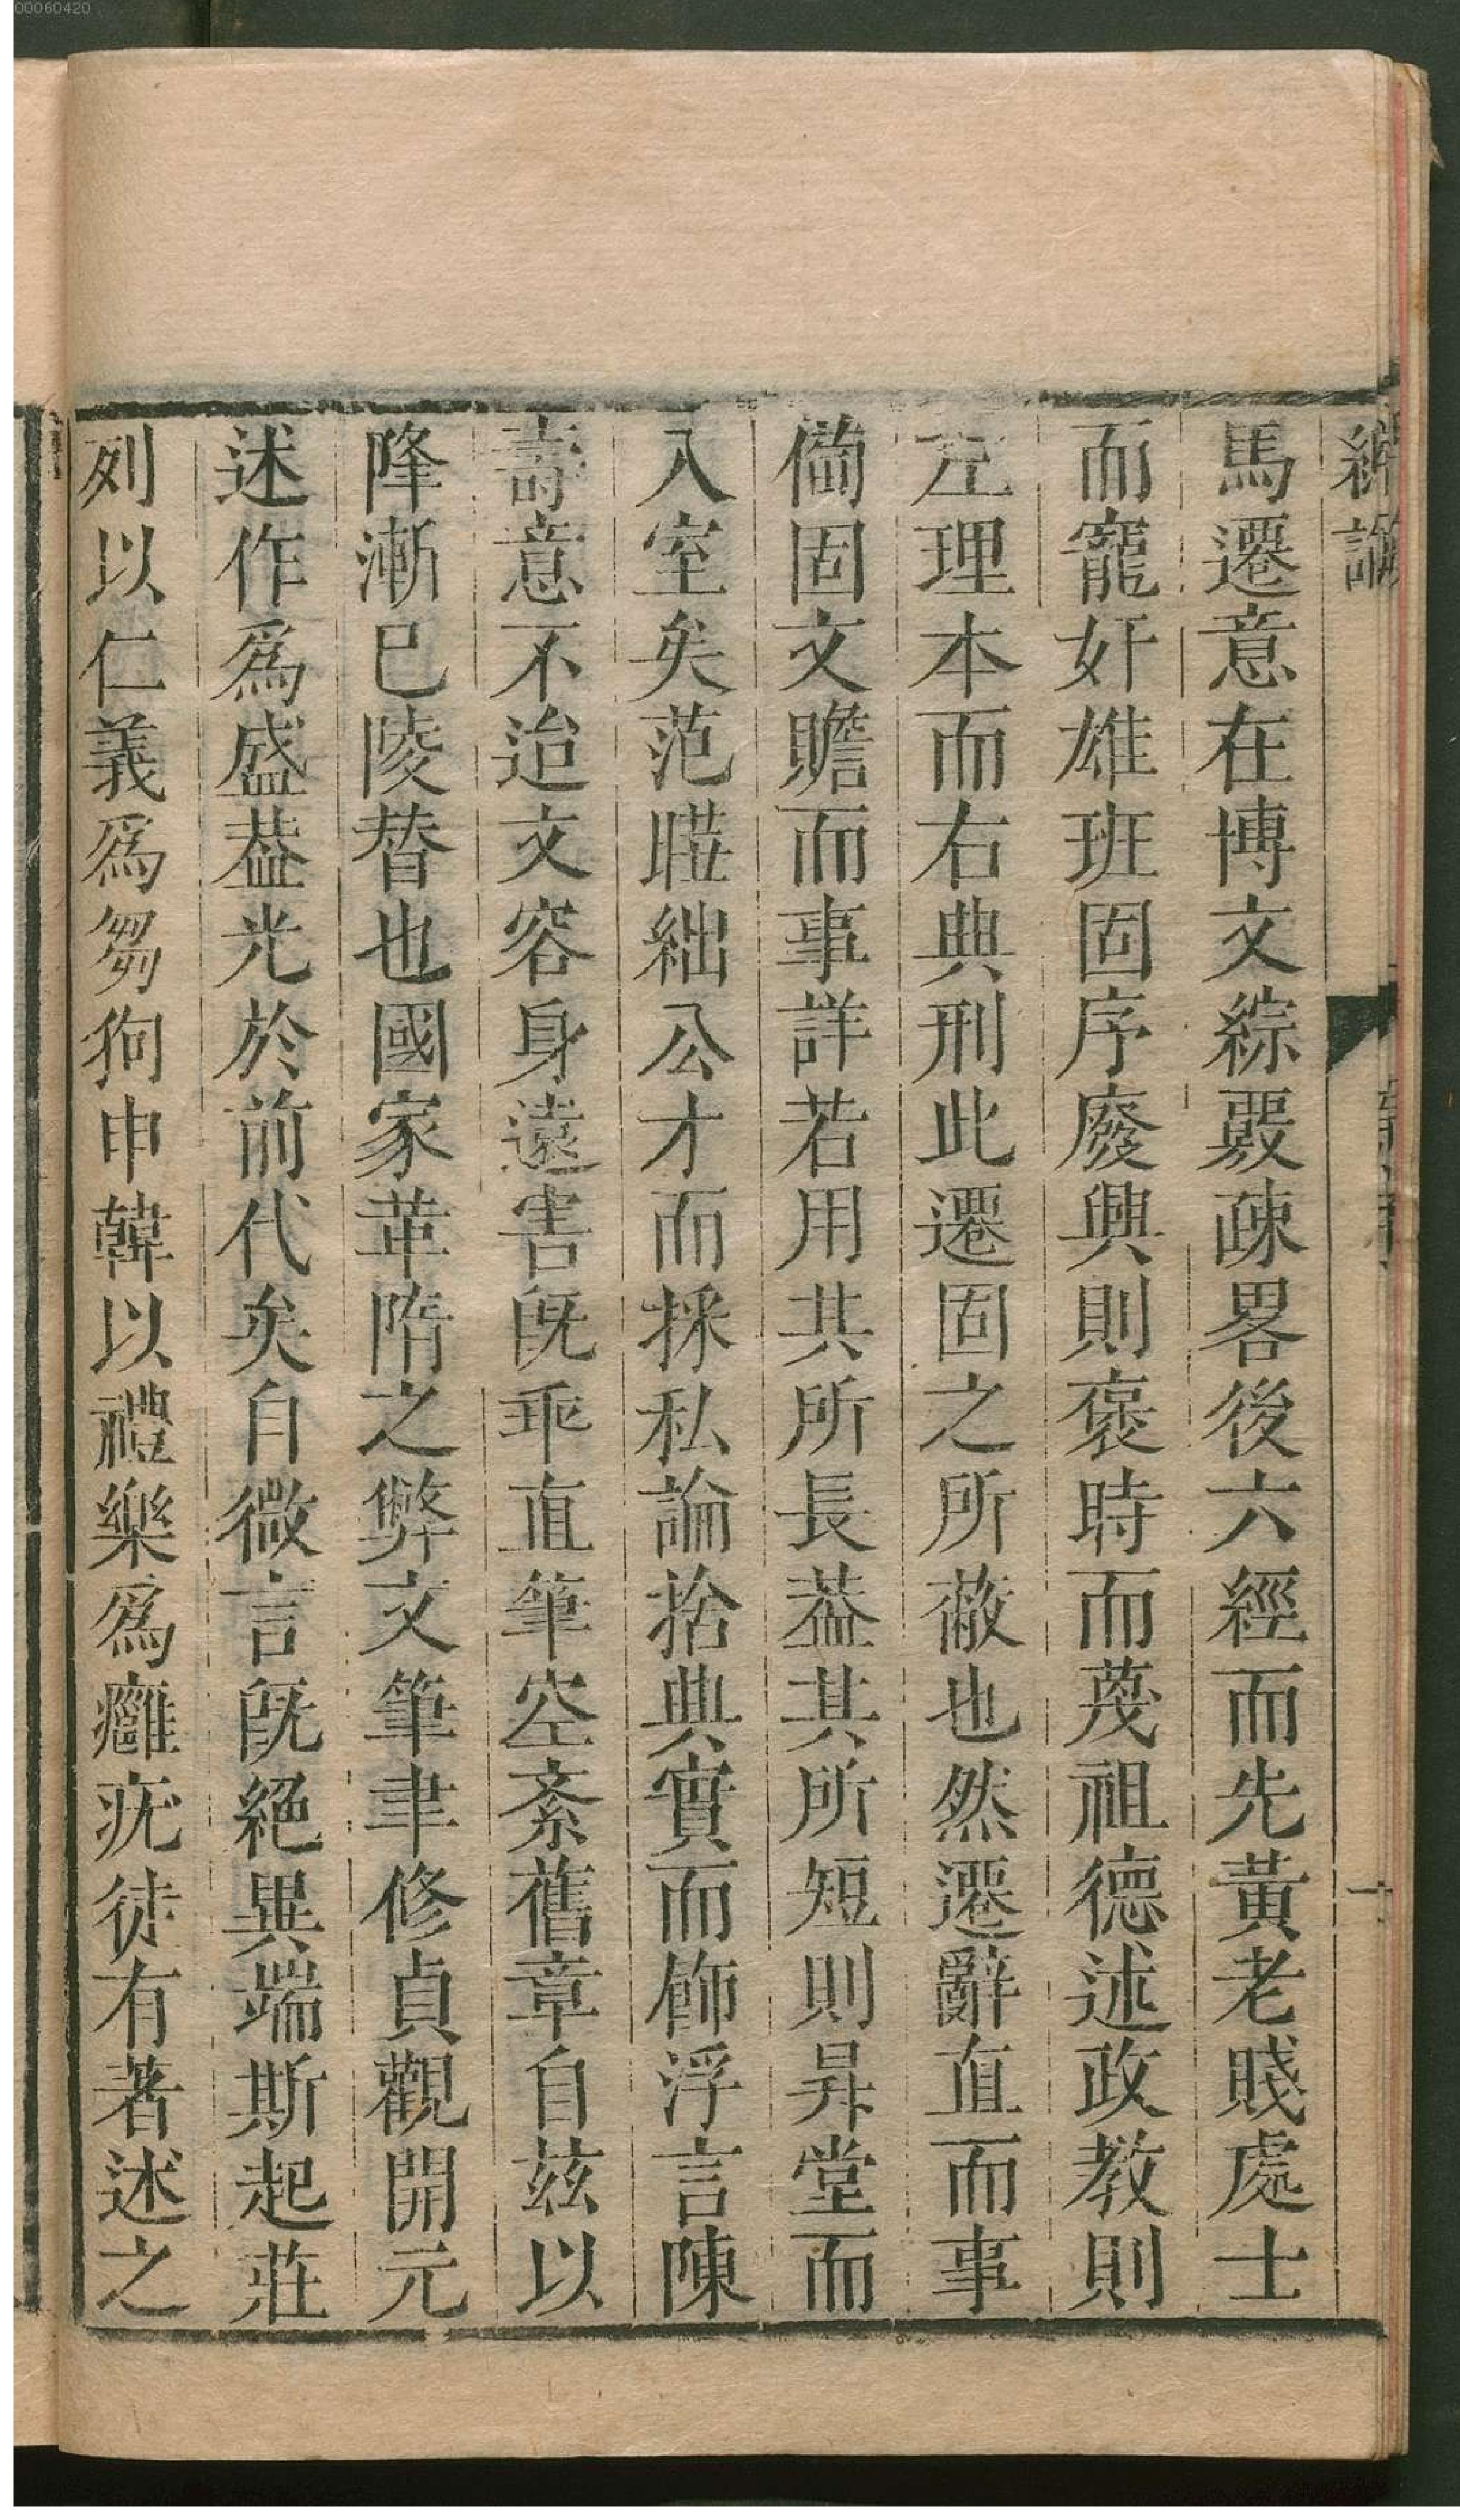 00060420
馬遷意在博文綜覈疎畧後六經而先黃老賤處士
而寵奸雄班固序廢興則褒時而蔑祖德述政教則
左理本而右典刑此遷固之所蔽也然遷辭直而事
備固文贍而事詳若用其所長葢其所短則昇堂而
入室矣范曄絀公才而採私論捨典實而飾浮言陳
壽意不迨文容身遠害旣乖直筆空紊舊章自茲以
降漸已陵替也國家革隋之弊文筆聿修貞觀開元
述作爲盛葢光於前代矣自微言旣絕異端斯起莊
列以仁義爲芻狗申韓以禮樂爲癰疣徒有著述之
十